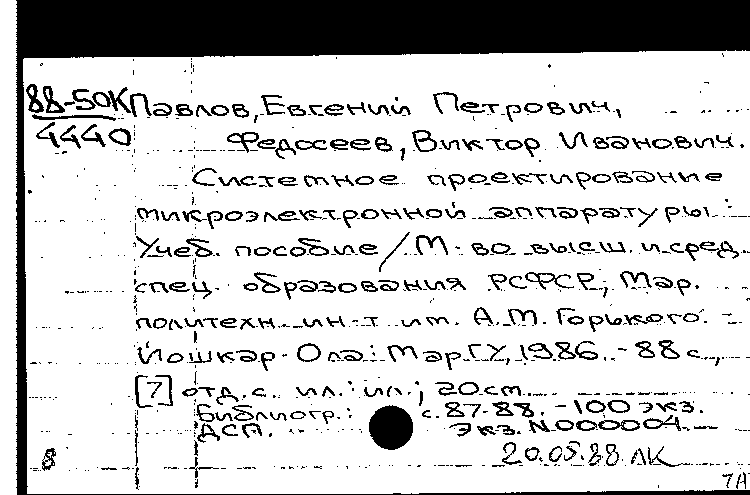 88-50К Павлов, Евгений Петрович,
4440 Федосеев, Виктор Иванович.
Системное проектирование
микроэлектронной аппаратуры:
Учеб. пособие / М-во высш. и сред.
спец. образования РСФСР, Мар.
политехн. ин-т им. А.М. Горького. -
Йошкар-Ола: МарГУ, 1986. - 88 с.,
[7] отд. с. ил.: ил.; 20 см.
Библиогр.: с. 87-88. - 100 экз.
ДСП. Экз. N000004.
8 20.05.88 ЛК